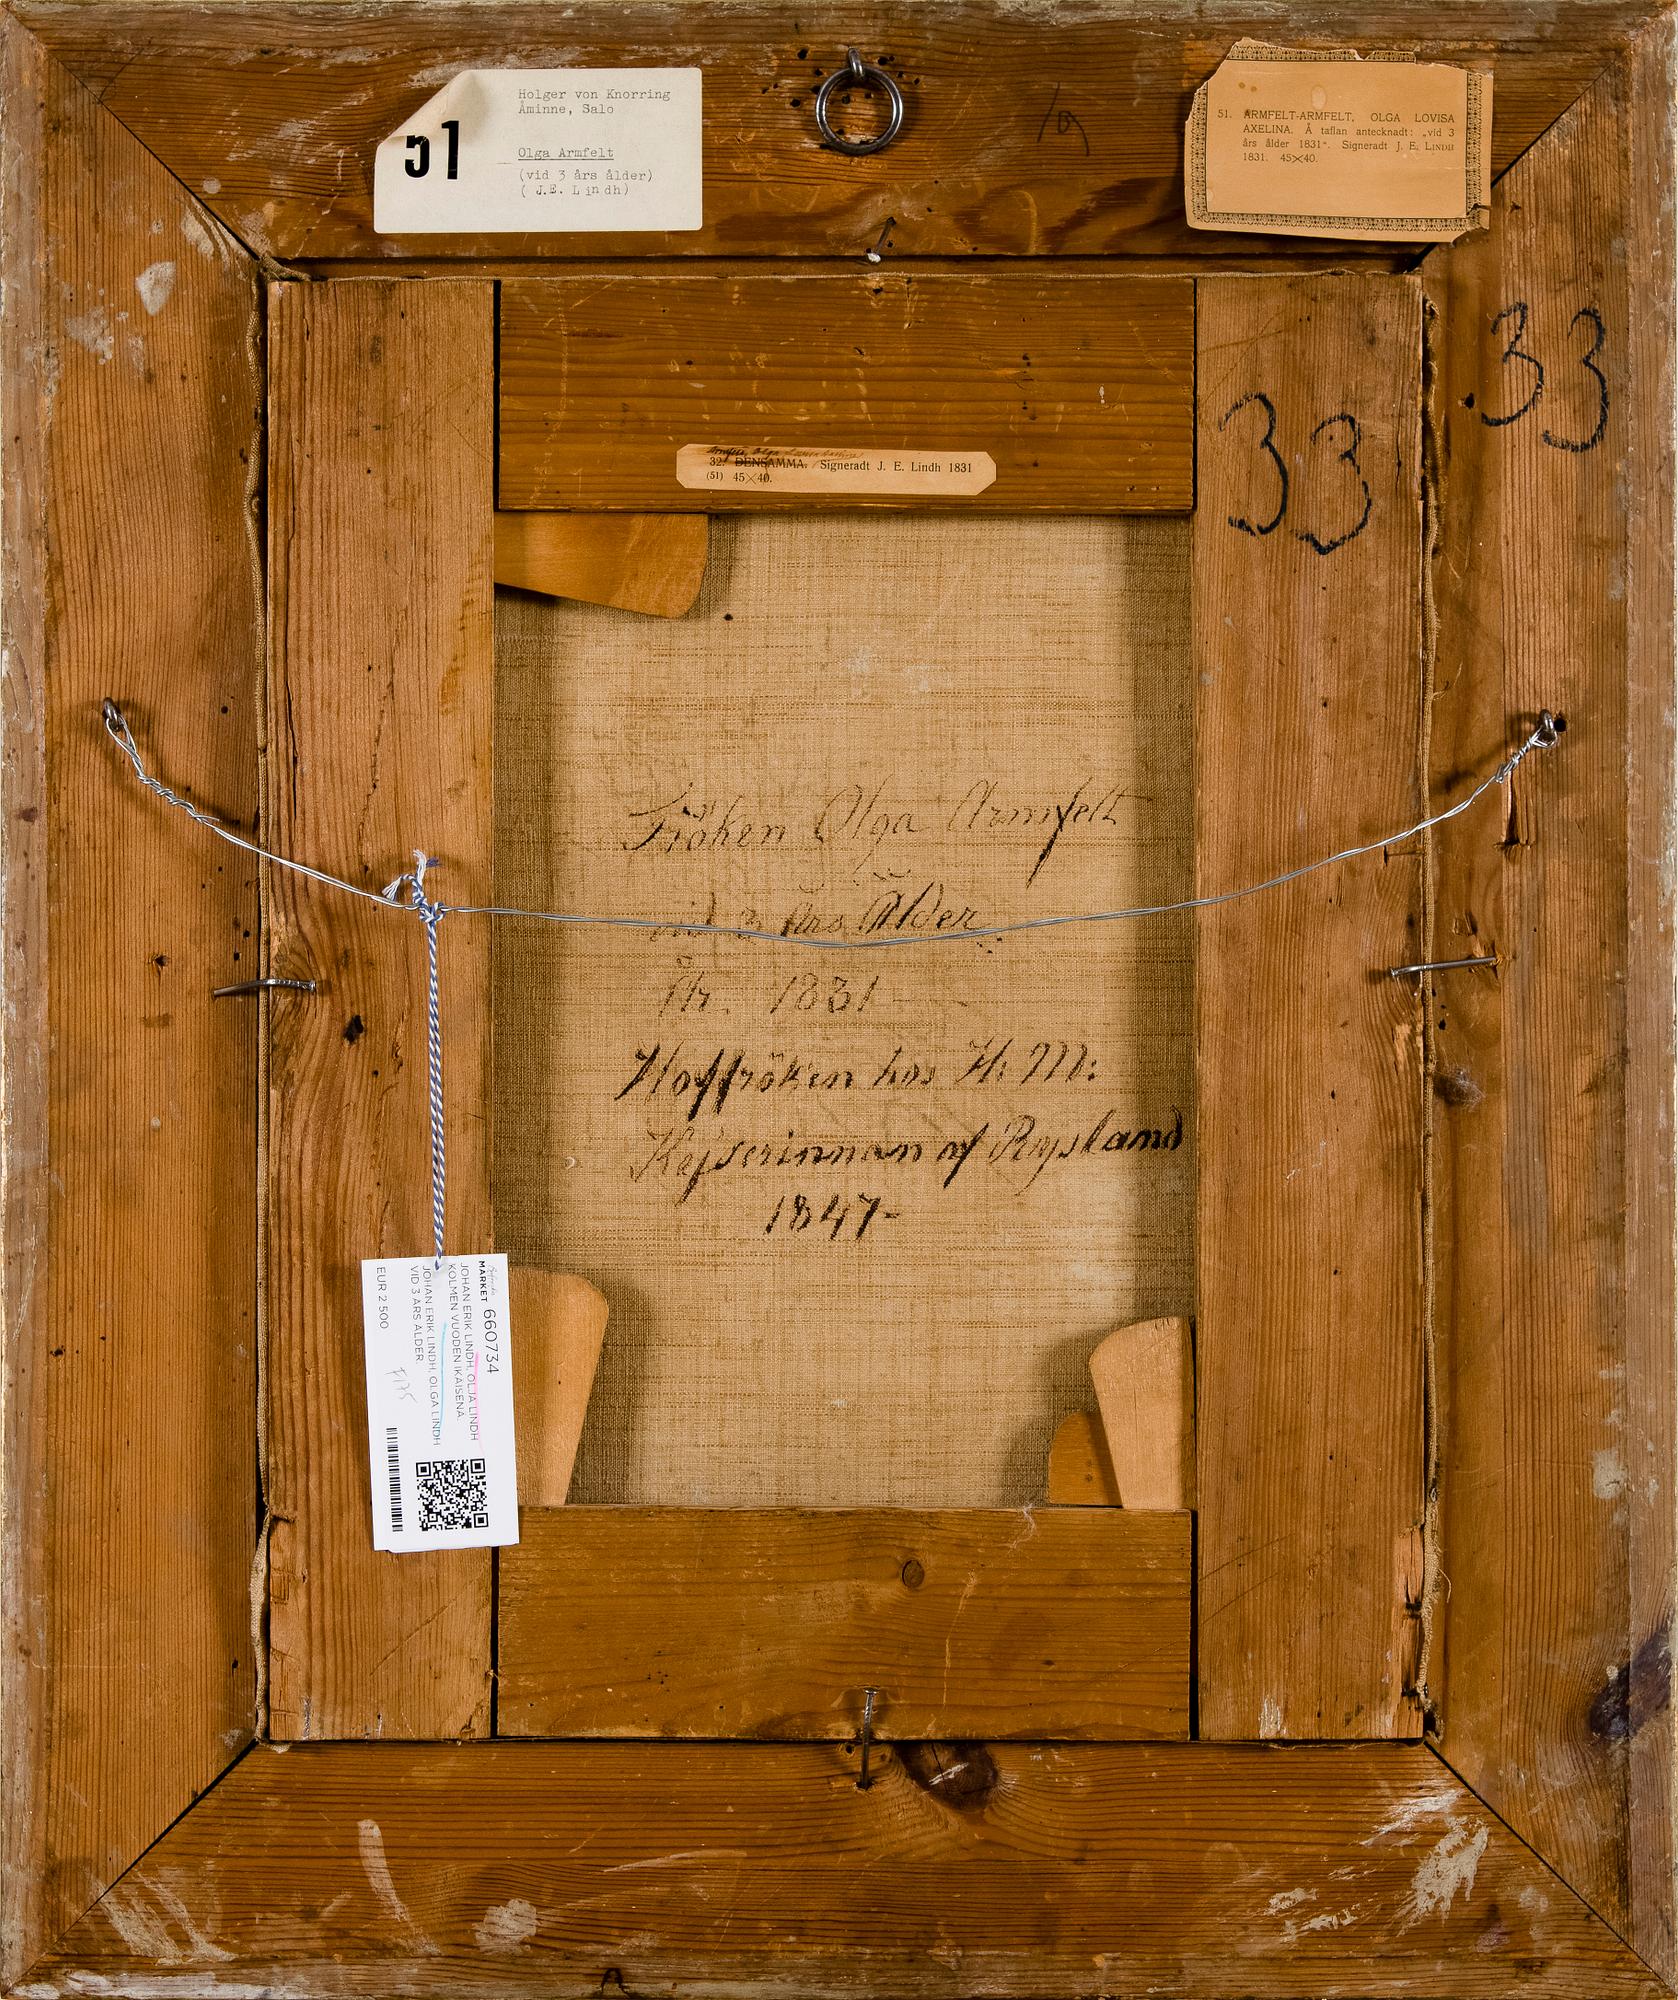 51
Holger von Knorring
Åminne, Salo
Olga Armfelt
(vid 3 års ålder)
( J.E. Lindh)
51. ARMFELT-ARMFELT, OLGA LOVISA
AXELINA. Å taflan antecknadt: „vid 3
års ålder 1831“. Signeradt J. E. LINDH
1831. 45×40.
33
33
32. DENSAMMA. Signeradt J. E. Lindh 1831
(51) 45×40.
Fröken Olga Armfelt
vid 3 Års Ålder
År. 1831
Hoffröken hos H: M:
Kejserinnan af Ryssland
1847-
MARKET 660734
JOHAN ERIK LINDH, OLJA LINDH
KOLMEN VUODEN IKAISENA.
JOHAN ERIK LINDH, OLGA LINDH
VID 3 ARS ALDER.
EUR 2 500